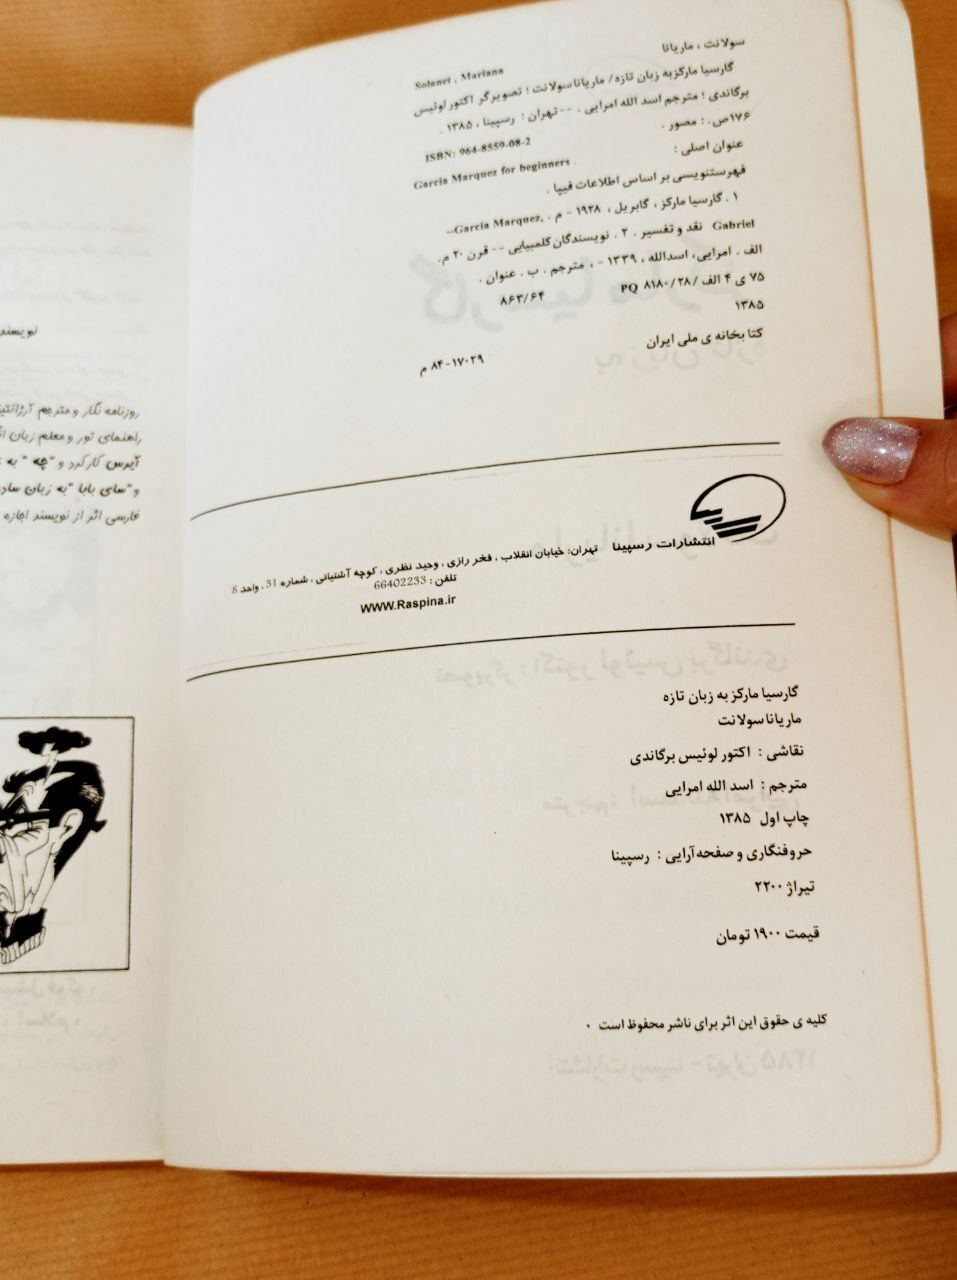 سولانت ، ماریانا
Solanet , Mariana
گارسیا مارکز به زبان تازه / ماریانا سولانت ؛ تصویرگر اکتور لوئیس
برگاندی ؛ مترجم اسد الله امرایی . -- تهران : رسپینا ، ۱۳۸۵ .
۱۷۶ص. : مصور .
ISBN: 964-8559-08-2
عنوان اصلی :
Garcia Marquez for beginners .
فهرستنویسی بر اساس اطلاعات فیپا .
۱ . گارسیا مارکز ، گابریل ، ۱۹۲۸ - م . Garcia Marquez,--
Gabriel نقد و تفسیر . ۲ . نویسندگان کلمبیایی -- قرن ۲۰ م.
الف . امرایی، اسدالله ، ۱۳۳۹ - ، مترجم . ب . عنوان .
۷۵ ی ۴ الف / ۲۸ / ۸۱۸۰ PQ
۸۶۳/۶۴
۱۳۸۵
کتابخانه ی ملی ایران
۸۴-۱۷۰۲۹ م
انتشارات رسپینا تهران: خیابان انقلاب ، فخر رازی ، وحید نظری ، کوچه آشتیانی ، شماره 31 ، واحد 8
تلفن : 66402233
WWW.Raspina.ir
گارسیا مارکز به زبان تازه
ماریانا سولانت
نقاشی : اکتور لوئیس برگاندی
مترجم : اسد الله امرایی
چاپ اول ۱۳۸۵
حروفنگاری و صفحه آرایی : رسپینا
تیراژ ۲۲۰۰
قیمت ۱۹۰۰ تومان
کلیه ی حقوق این اثر برای ناشر محفوظ است .
روزنامه نگار و مترجم
راهنمای تور و معلم زبان
آیرس کار کرد و "چه" به
و "سای بابا" به زبان
فارسی اثر از نویسنده اجازه